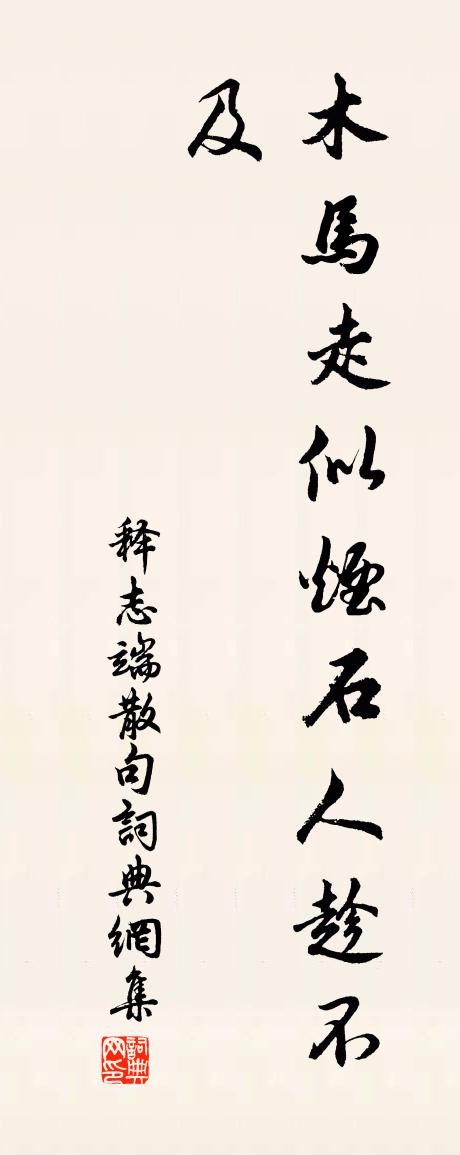 木馬走似煙石人趁不
及
释志端散句詞典網集
詞典网印